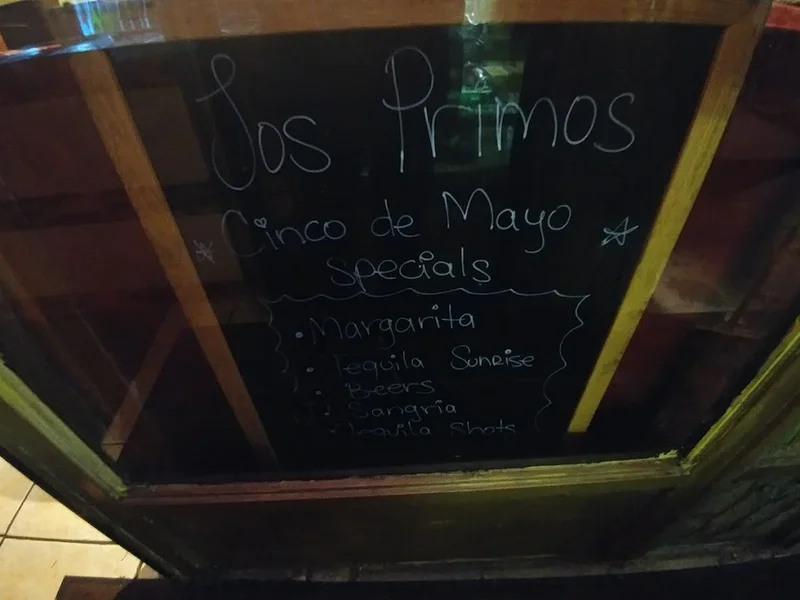 Los Primos
Cinco de Mayo
Specials
• Margarita
• Tequila Sunrise
• Beers
• Sangria
Tequila Shots